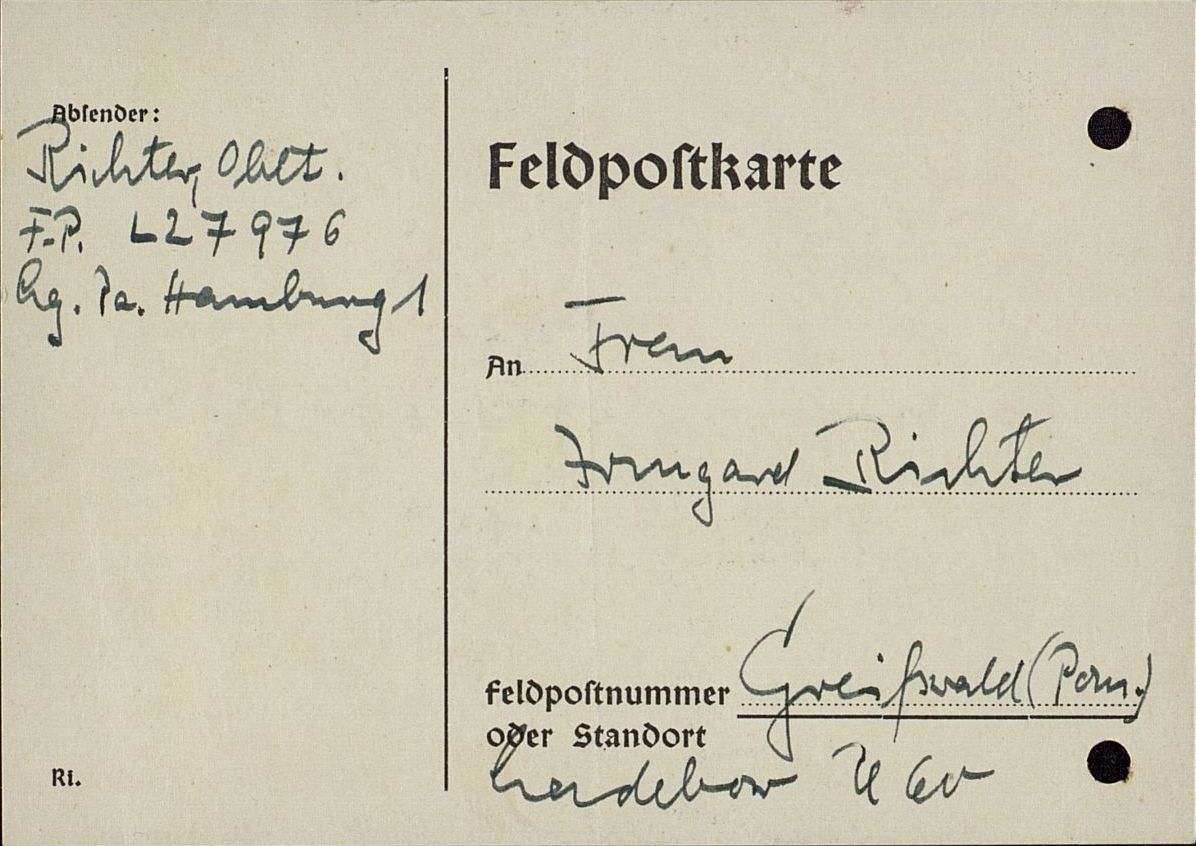 Absender:
Richter, Oblt.
F.P. L27976
Lg. Pa. Hamburg 1
Ri.
Feldpostkarte
An Frau
Irmgard Richter
Feldpostnummer Greifswald (Pom.)
oder Standort